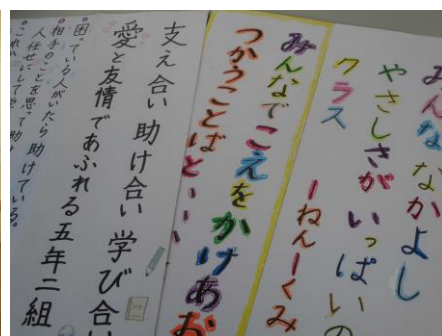 みんな なかよし
やさしさが いっぱいの
クラス
一ねん一くみ
みんなでこえをかけあお
つかうことばと・・・
支え合い 助け合い 学び合い
愛と友情であふれる 五年二組
・困っている人がいたら助けている。
・相手のことを思って
人任せにして